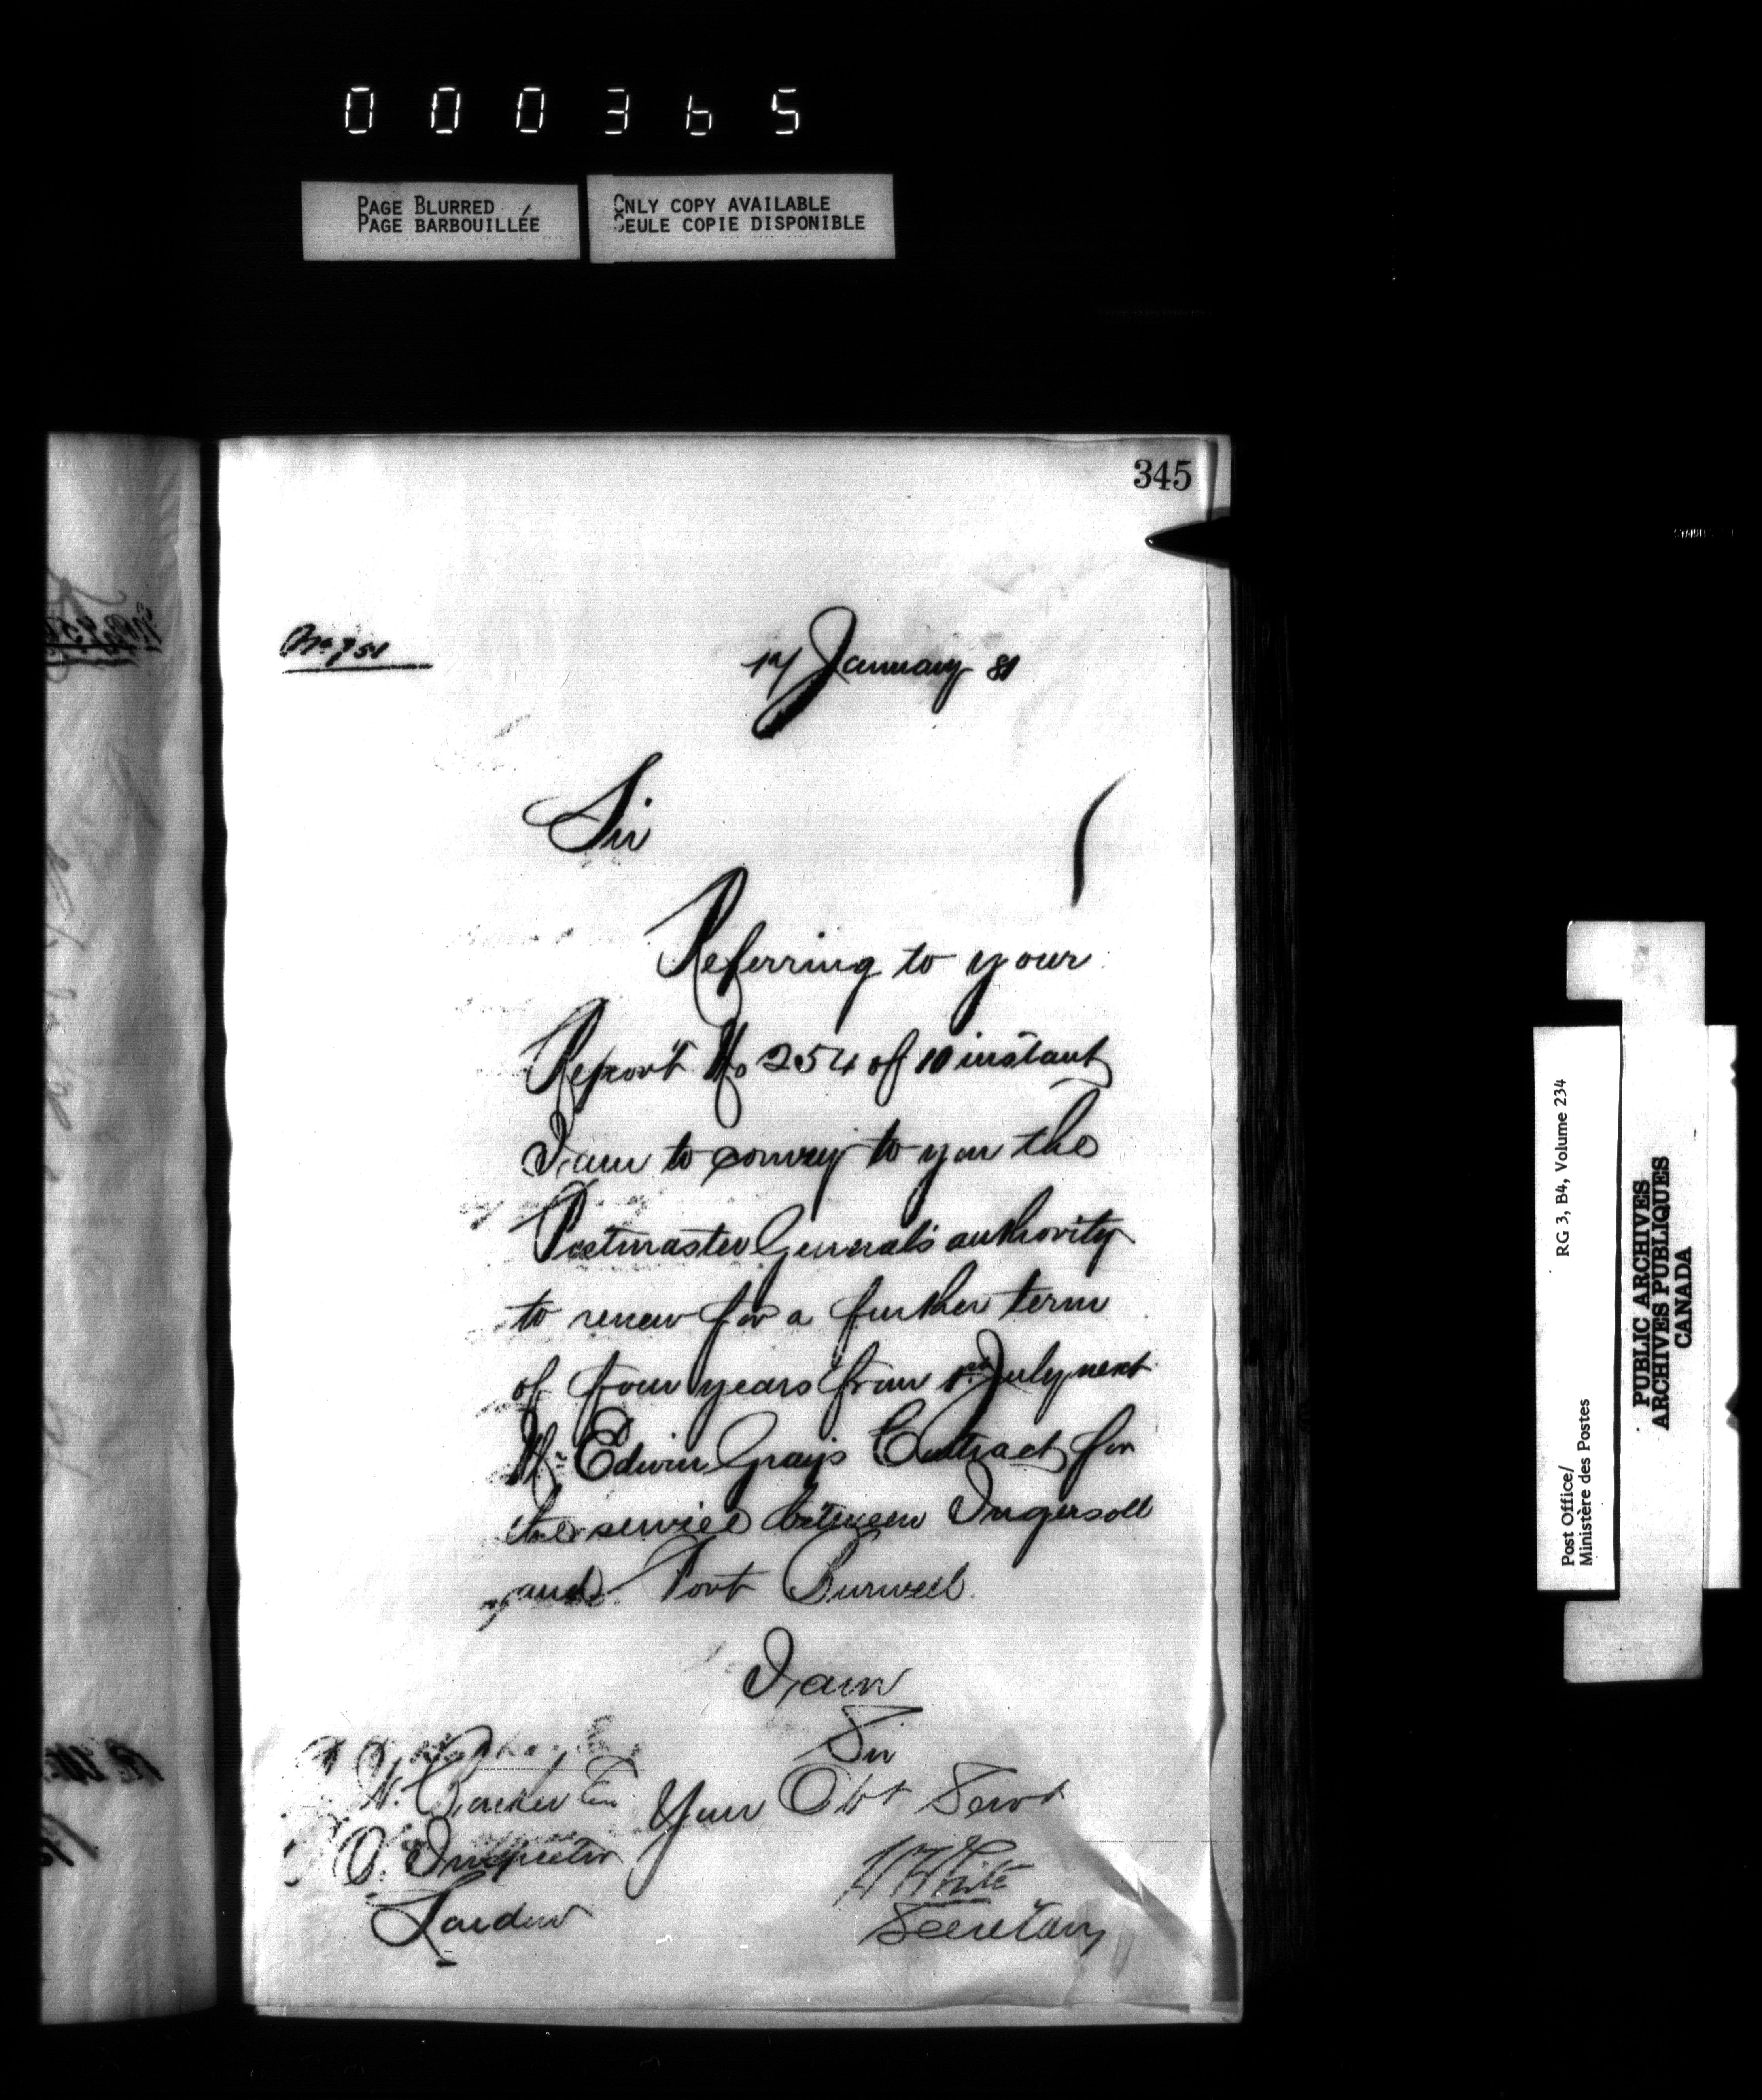 000365
PAGE BLURRED
PAGE BARBOUILLÉE
ONLY COPY AVAILABLE
SEULE COPIE DISPONIBLE
345
No 751
14 January 81
Sir
Referring to your
Report No 254 of 10 instant
I am to convey to you the
Postmaster General's authority
to renew for a further term
of four years from 1st July next
Mr Edwin Gray's Contract for
the service between Ingersoll
and Port Burwell.
I am
Sir
Your Obt Servt
W White
Secretary
Barker Esq
P. O. Inspector
London
Post Office/
Ministère des Postes
RG 3, B4, Volume 234
PUBLIC ARCHIVES
ARCHIVES PUBLIQUES
CANADA